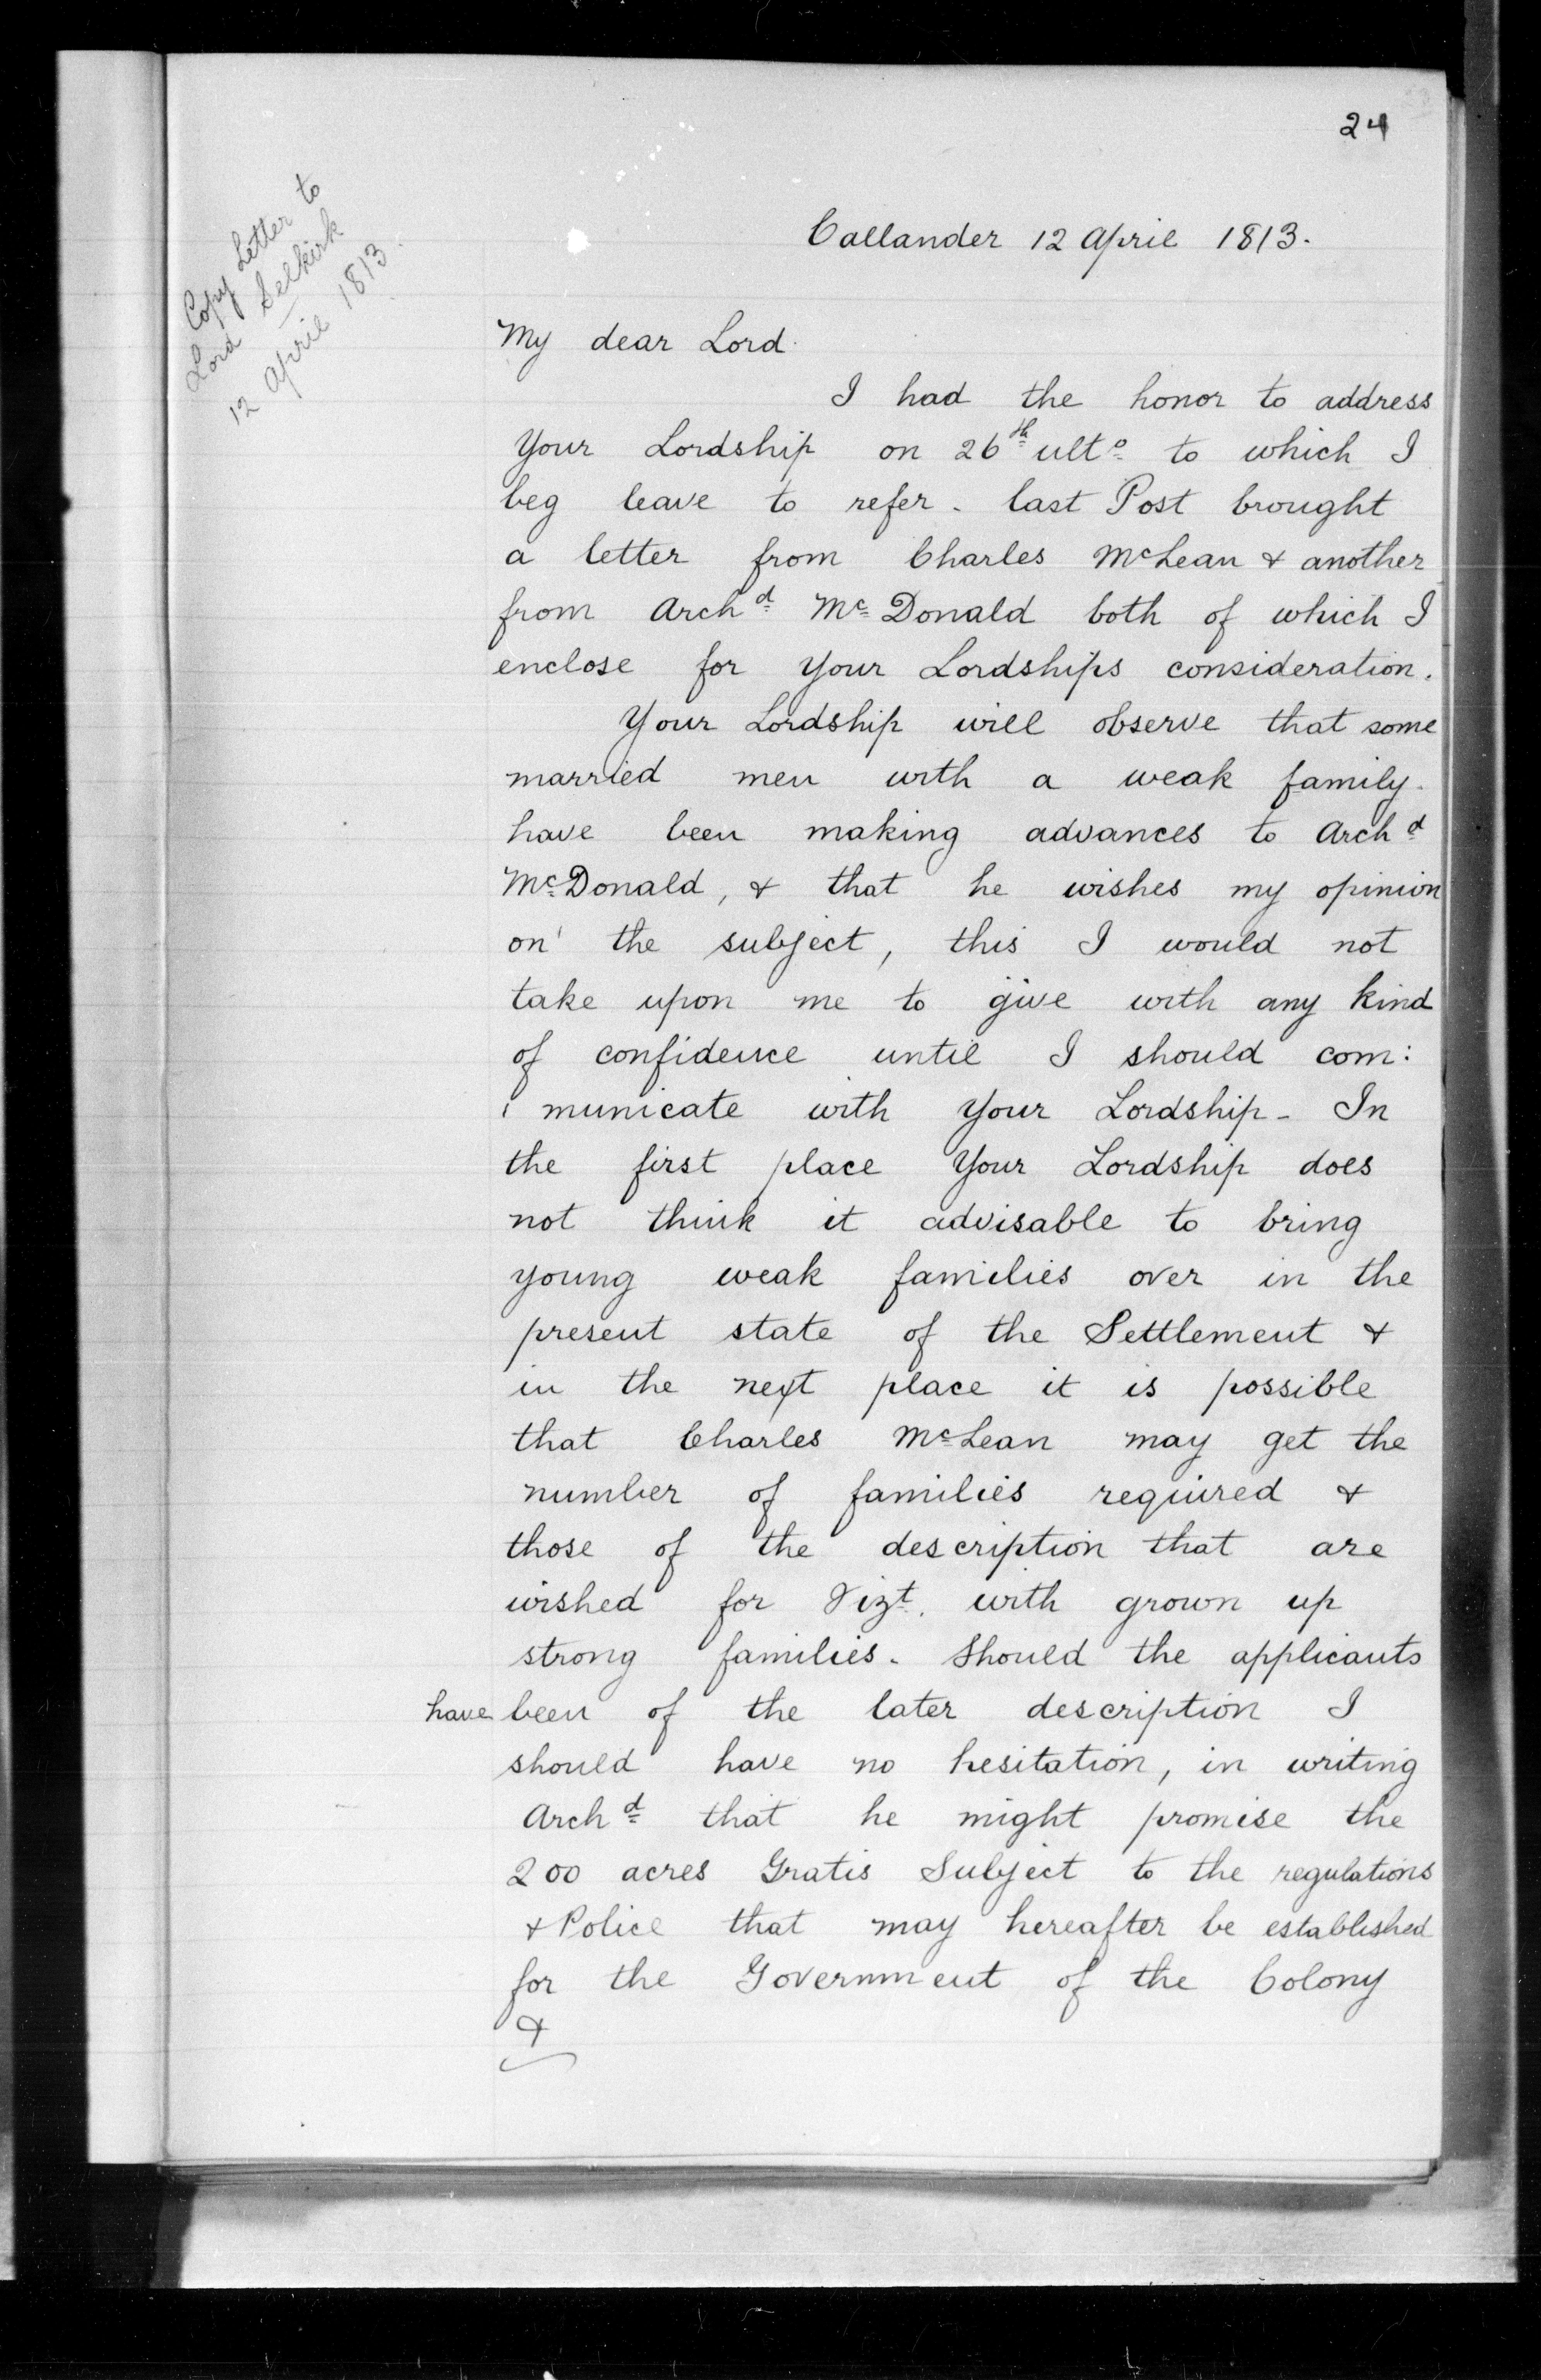 24
Copy Letter to
Lord Selkirk
12 April 1813.
Callander 12 April 1813.
My dear Lord.
I had the honor to address
Your Lordship on 26th ulto to which I
beg leave to refer. last Post brought
a letter from Charles McLean & another
from Archd McDonald both of which I
enclose for Your Lordships consideration.
Your Lordship will observe that some
married men with a weak family.
have been making advances to Archd
McDonald, & that he wishes my opinion
on the subject, this I would not
take upon me to give with any kind
of confidence until I should com:
: municate with Your Lordship - In
the first place Your Lordship does
not think it advisable to bring
young weak families over in the
present state of the Settlement &
in the next place it is possible
that Charles McLean may get the
number of families required &
those of the description that are
wished for Vizt. with grown up
strong families. Should the applicants
have been of the later description I
should have no hesitation, in writing
Archd that he might promise the
200 acres Gratis Subject to the regulations
& Police that may hereafter be established
for the Government of the Colony
&